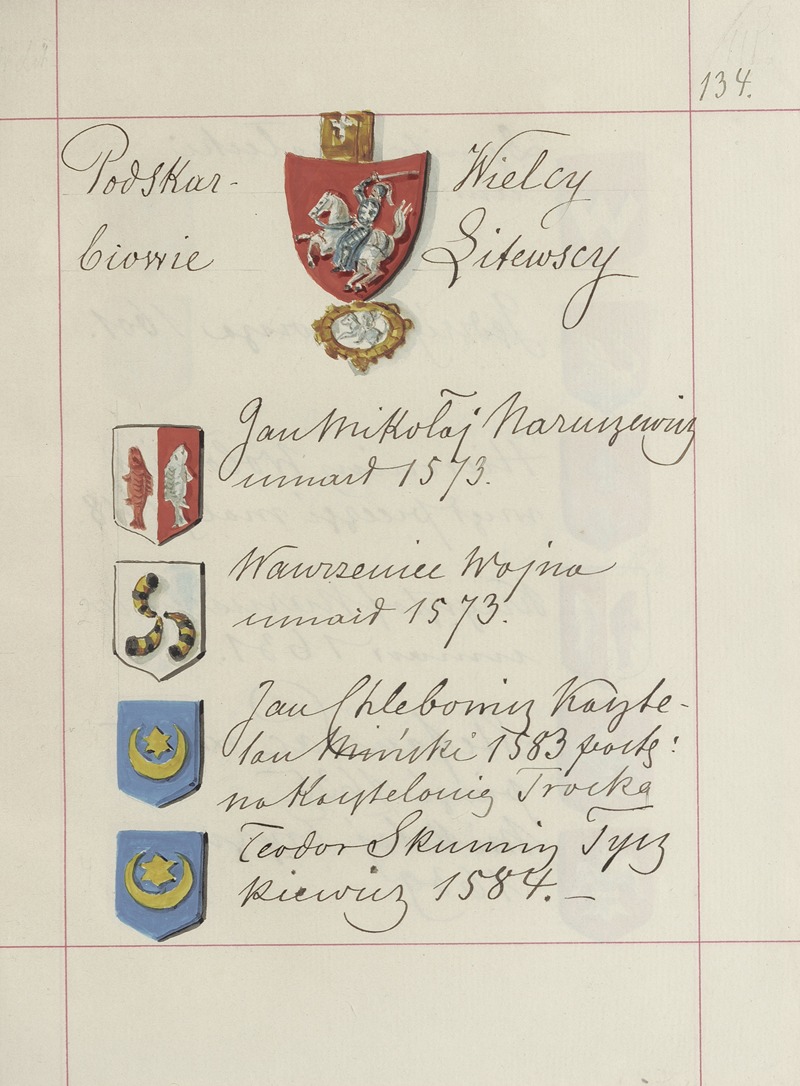 134.
Podskar- Wielcy
biowie Litewscy
Jan Mikołaj Naruszewicz
umarł 1573.
Wawrzeniec Wojna
umarł 1573.
Jan Chlebowicz Kaszte-
lan Miński 1583 postą:
na Kasztelonię Trocką
Teodor Skumin Tysz
kiewicz 1584. –